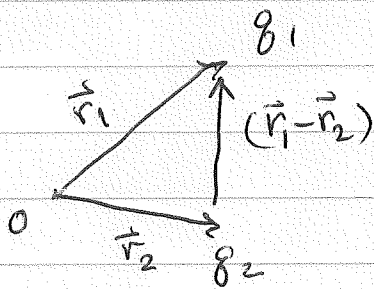 q₁
r⃗₁
(r⃗₁-r⃗₂)
0
r⃗₂
q₂